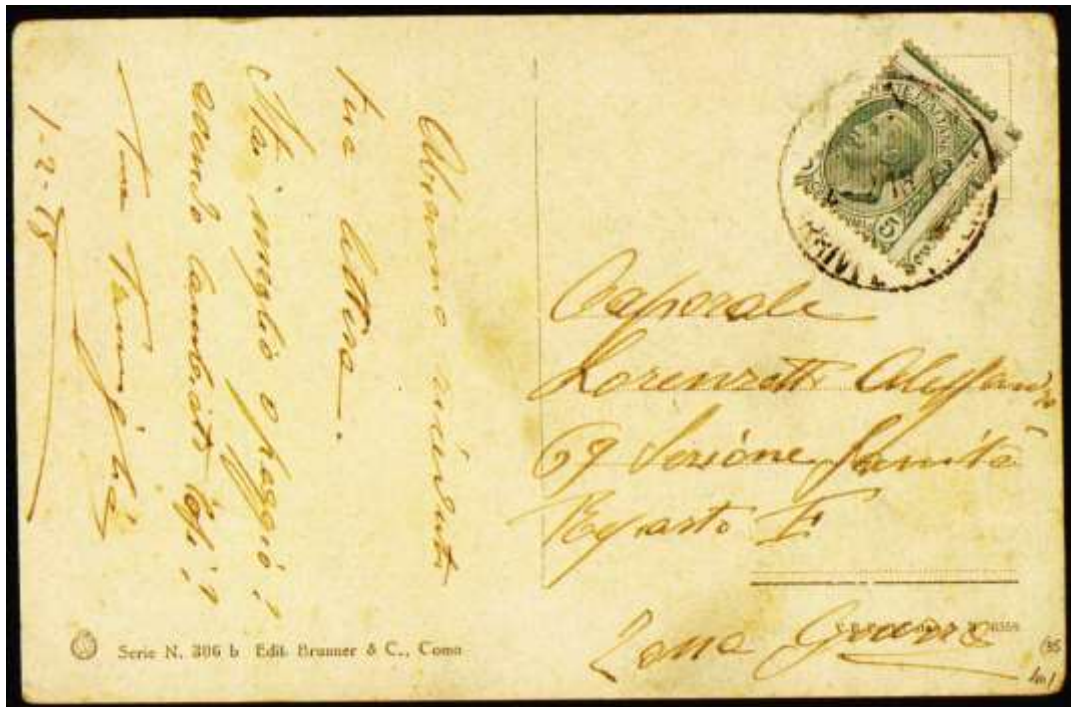 Abbiamo ricevuto
tua lettera.
Stai meglio o peggio?
avendo cambiato
Tua Famiglia
1-2-18
Caporale
Lorenzotti Alessandro
69 Sezione Sanità
Reparto I
Zona Guerra
Serie N. 306 b Edit. Brunner & C., Como
5